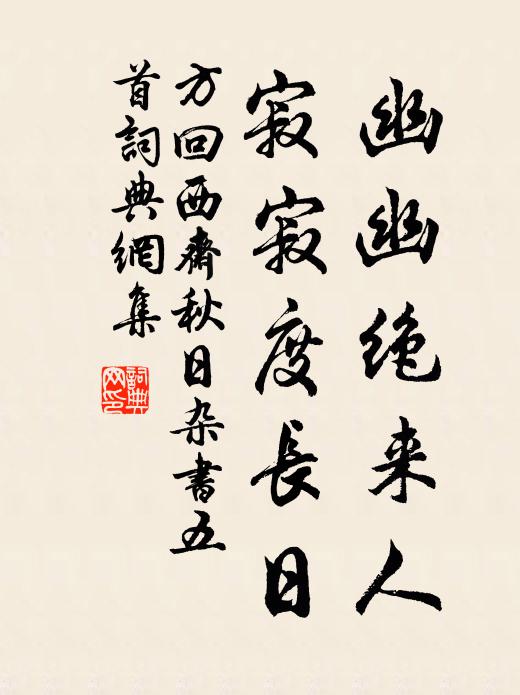 幽幽绝来人
寂寂度長日
方回西齋秋日杂書五
首詞典網集
詞典
网印